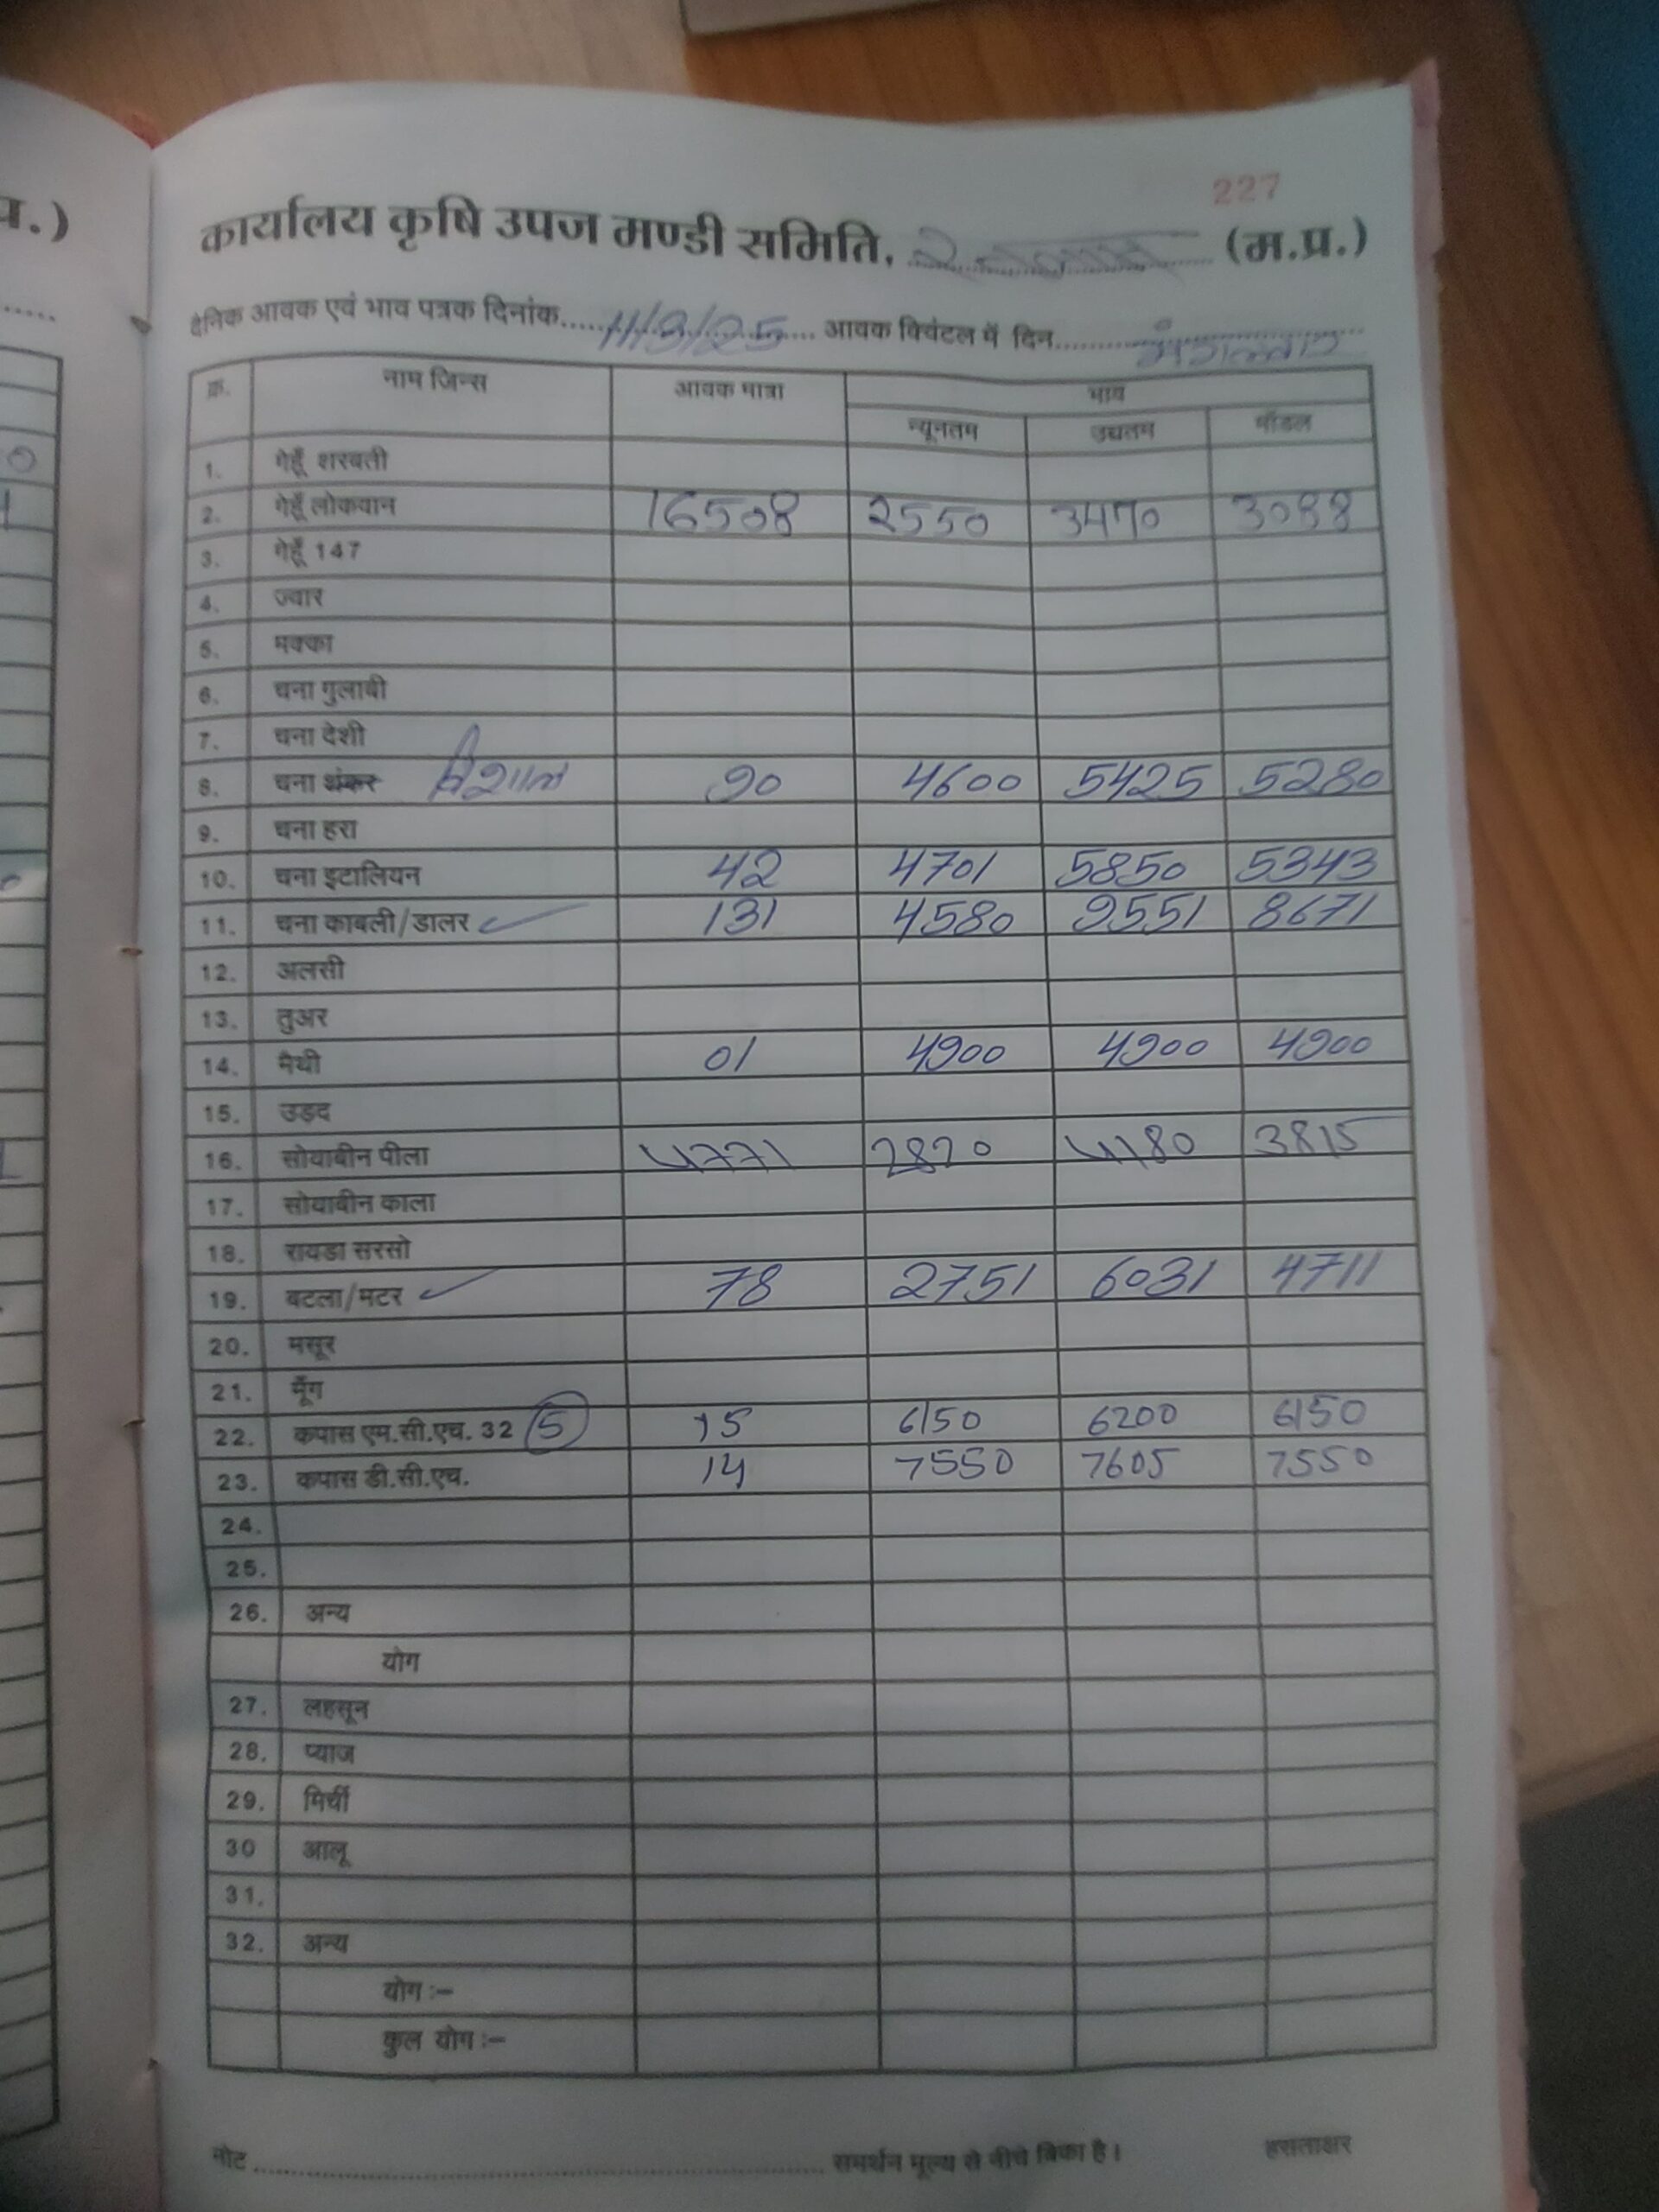 227
कार्यालय कृषि उपज मण्डी समिति, (म.प्र.)
दैनिक आवक एवं भाव पत्रक दिनांक 11/3/25 आवक क्विंटल में दिन मंगलवार
क्र. नाम जिन्स आवक मात्रा भाव
न्यूनतम उच्चतम मॉडल
1. गेहूँ शरबती
2. गेहूँ लोकवान 16508 2550 3470
3. गेहूँ 147
4. ज्वार
5. मक्का
6. चना गुलाबी
7. चना देशी
8. चना शंकर विशाल 90 4600 5425 5280
9. चना हरा
10. चना इटालियन 42 4701 5850 5343
11. चना काबली/डालर 131 4580 9551 8671
12. अलसी
13. तुअर
14. मैथी 01 4900 4900 4900
15. उड़द
16. सोयाबीन पीला 4771 2820 4180 3815
17. सोयाबीन काला
18. रायडा सरसो
19. बटला/मटर 78 2751 6031 4711
20. मसूर
21. मूँग
22. कपास एम.सी.एच. 32 5 15 6150 6200 6150
23. कपास डी.सी.एच. 14 7550 7605 7550
24.
25.
26. अन्य
योग
27. लहसून
28. प्याज
29. मिर्ची
30 आलू
31.
32. अन्य
योग :–
कुल योग :–
नोट समर्थन मूल्य से नीचे बिका है। हस्ताक्षर